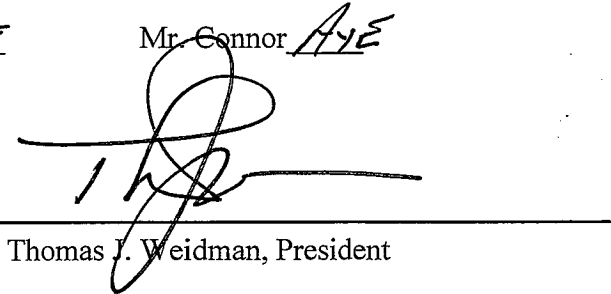 Mr. Connor AYE
Thomas J. Weidman, President